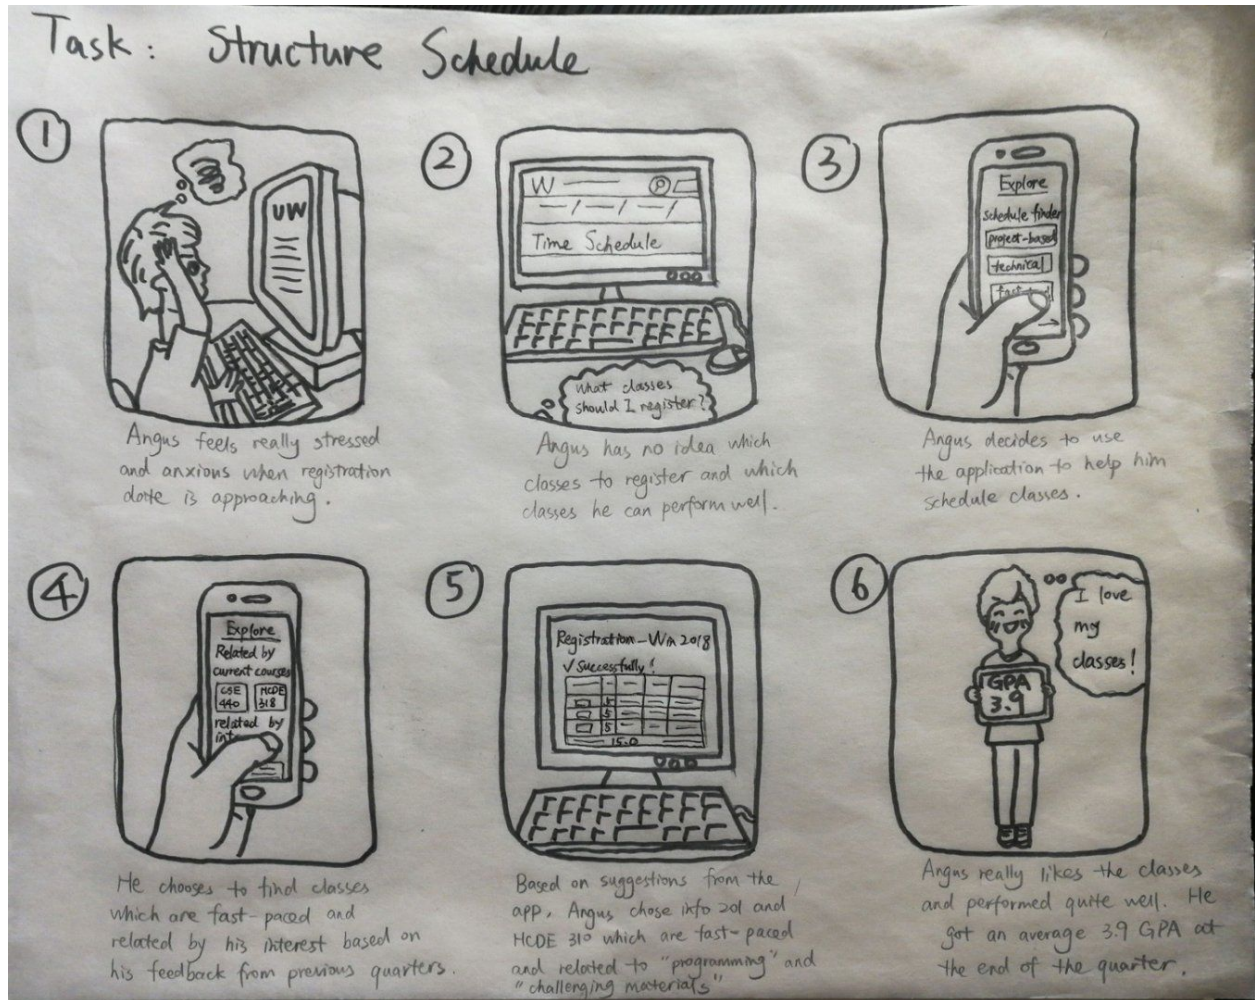 Task: Structure Schedule
1
UW
Angus feels really stressed
and anxious when registration
date is approaching.
2
W
Time Schedule
What classes
should I register?
Angus has no idea which
classes to register and which
classes he can perform well.
3
Explore
schedule finder
project-based
technical
Angus decides to use
the application to help him
schedule classes.
4
Explore
Related by
current courses
CSE HCDE
440 318
related by
He chooses to find classes
which are fast-paced and
related by his interest based on
his feedback from previous quarters.
5
Registration-Win 2018
✓ Successfully!
5
5
5
15.0
Based on suggestions from the
app, Angus chose info 201 and
HCDE 310 which are fast-paced
and related to "programming" and
"challenging materials"
6
I love
my
classes!
GPA
3.9
Angus really likes the classes
and performed quite well. He
got an average 3.9 GPA at
the end of the quarter.